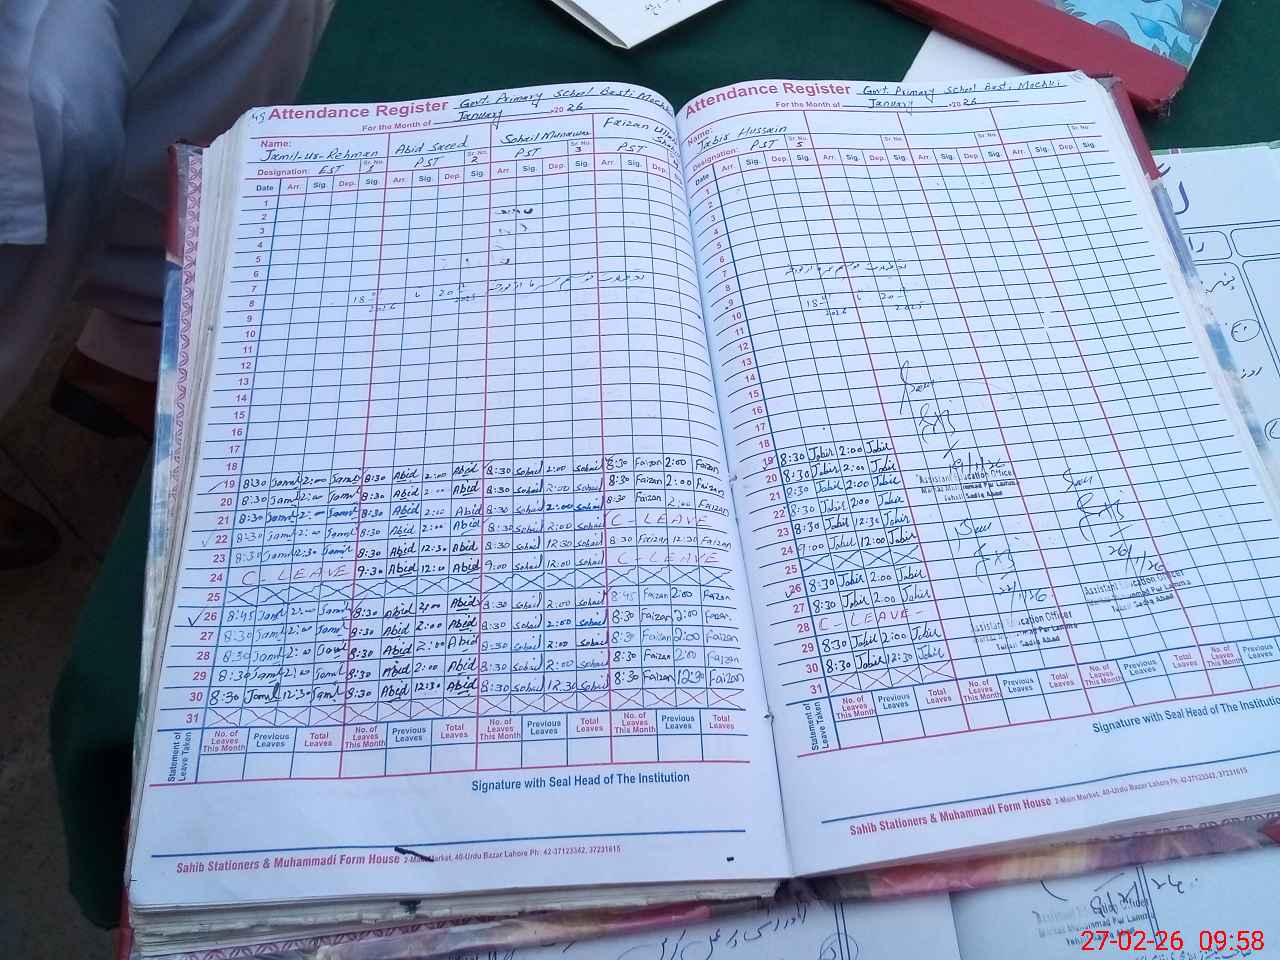 49 Attendance Register Govt. Primary School Basti Mochki
For the Month of January 2026
Name: Jamil-us-Rehman Abid Saeed Sohail Munawar Faizan
Designation: EST Sr. No. 1 PST Sr. No. 2 PST Sr. No. 3 PST
Date Arr. Sig. Dep. Sig. Arr. Sig. Dep. Sig. Arr. Sig. Dep. Sig. Arr. Sig. Dep. Sig.
1
2
3
4
5
6
7
8
9
10
11
12
13
14
15
16
17
18
19 8:30 Jamil 2:00 Jamil 8:30 Abid 2:00 Abid 8:30 Sohail 2:00 Sohail 8:30 Faizan 2:00 Faizan
20 8:30 Jamil 2:00 Jamil 8:30 Abid 2:00 Abid 8:30 Sohail 2:00 Sohail 8:30 Faizan 2:00 Faizan
21 8:30 Jamil 2:00 Jamil 8:30 Abid 2:00 Abid 8:30 Sohail 2:00 Sohail 8:30 Faizan 2:00 Faizan
22 8:30 Jamil 2:00 Jamil 8:30 Abid 2:00 Abid 8:30 Sohail 2:00 Sohail C-LEAVE
23 8:30 Jamil 12:30 Jamil 8:30 Abid 12:30 Abid 8:30 Sohail 12:30 Sohail 8:30 Faizan 12:30 Faizan
24 C-LEAVE 9:30 Abid 12:00 Abid 9:00 Sohail 12:00 Sohail C-LEAVE
25
26 8:45 Jamil 2:00 Jamil 8:30 Abid 2:00 Abid 8:30 Sohail 2:00 Sohail 8:45 Faizan 2:00 Faizan
27 8:30 Jamil 2:00 Jamil 8:30 Abid 2:00 Abid 8:30 Sohail 2:00 Sohail 8:30 Faizan 2:00 Faizan
28 8:30 Jamil 2:00 Jamil 8:30 Abid 2:00 Abid 8:30 Sohail 2:00 Sohail 8:30 Faizan 2:00 Faizan
29 8:30 Jamil 2:00 Jamil 8:30 Abid 2:00 Abid 8:30 Sohail 2:00 Sohail 8:30 Faizan 2:00 Faizan
30 8:30 Jamil 12:30 Jamil 8:30 Abid 12:30 Abid 8:30 Sohail 12:30 Sohail 8:30 Faizan 12:30 Faizan
31
Statement of Leave Taken No. of Leaves This Month Previous Leaves Total Leaves No. of Leaves This Month Previous Leaves Total Leaves No. of Leaves This Month Previous Leaves Total Leaves No. of Leaves This Month Previous Leaves Total Leaves
Signature with Seal Head of The Institution
Sahib Stationers & Muhammadi Form House 2-Main Market, 40-Urdu Bazar Lahore Ph: 42-37123342, 37231615
Attendance Register Govt. Primary School Basti Mochki
For the Month of January 2026
Name: Jabir Hussain
Designation: PST Sr. No. 5 Sr. No. Sr. No. Sr. No.
Date Arr. Sig. Dep. Sig. Arr. Sig. Dep. Sig. Arr. Sig. Dep. Sig. Arr. Sig. Dep. Sig.
1
2
3
4
5
6
7
8
9
10
11
12
13
14
15
16
17
18
19 8:30 Jabir 2:00 Jabir
20 8:30 Jabir 2:00 Jabir
21 8:30 Jabir 2:00 Jabir
22 8:30 Jabir 2:00 Jabir
23 8:30 Jabir 12:30 Jabir
24 9:00 Jabir 12:00 Jabir
25
26 8:30 Jabir 2:00 Jabir
27 8:30 Jabir 2:00 Jabir
28 C-LEAVE
29 8:30 Jabir 2:00 Jabir
30 8:30 Jabir 12:30 Jabir
31
Assistant Education Officer
Tehsil Sadiq Abad
Assistant Education Officer
Tehsil Sadiq Abad
Assistant Education Officer
Tehsil Sadiq Abad
Statement of Leave Taken No. of Leaves This Month Previous Leaves Total Leaves No. of Leaves This Month Previous Leaves Total Leaves No. of Leaves This Month Previous Leaves Total Leaves No. of Leaves This Month Previous Leaves
Signature with Seal Head of The Institution
Sahib Stationers & Muhammadi Form House 2-Main Market, 40-Urdu Bazar Lahore Ph: 42-37123342, 37231615
27-02-26 09:58